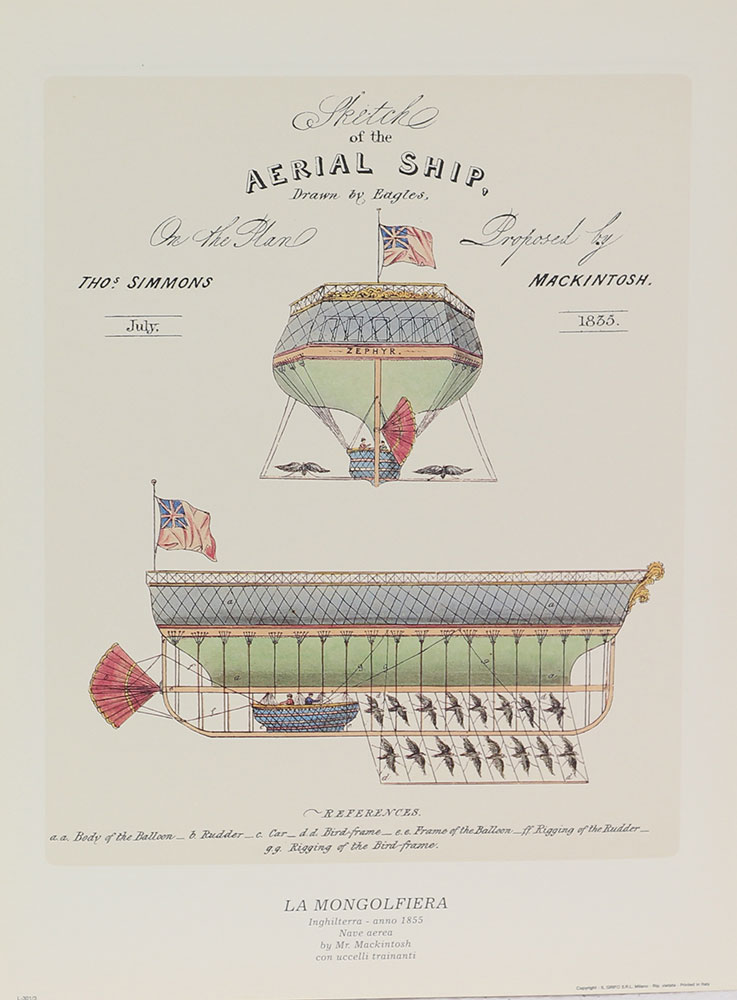 Sketch
of the
AERIAL SHIP,
Drawn by Eagles,
On the Plan Proposed by
THOS. SIMMONS MACKINTOSH.
July. 1835.
ZEPHYR.
REFERENCES.
a.a. Body of the Balloon _ b. Rudder _ c. Car _ d d. Bird-frame _ e.e. Frame of the Balloon _ ff Rigging of the Rudder _
g.g. Rigging of the Bird-frame.
LA MONGOLFIERA
Inghilterra - anno 1855
Nave aerea
by Mr. Mackintosh
con uccelli trainanti
Copyright - S. GRIFO S.R.L. Milano - Rip. vietata - Printed in Italy